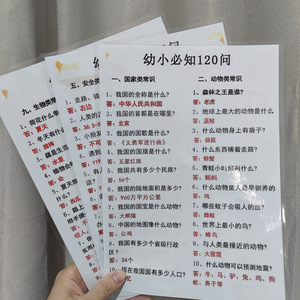 幼小必知120问
一、国家类常识
1、我国的全称是什么?
答：中华人民共和国
2、我国的首都是在哪里?
答：北京
3、我国的国歌是什么?
答：《义勇军进行曲》
4、我国的国旗是什么?
答：五星红旗
5、我国共有多少个民族?
答：56个
6、我国的陆地面积是多少?
答：960万平方公里
7、我国的国宝是什么动物?
答：大熊猫
8、中国的地图像什么动物?
答：公鸡
9、我国有多少个省级行政区?
答：34个
10、现在我国有多少人口?
二、动物类常识
1、森林之王是谁?
答：老虎
2、地球上最大的动物是什么
答：蓝鲸
3、什么动物身上有袋子?
答：袋鼠
4、什么东西横着走路?
答：螃蟹
5、青蛙小时候叫什么?
答：蝌蚪
6、什么动物是人类早驯养的
答：鸡
7、哪些蚊子会吸人的血?
答：雌蚊
8、世界上最小的鸟?
答：蜂鸟
9、与人类最接近的动物?
答：大猩猩
10、什么动物可以预测地震?
答：牛、马、驴、兔、鸡、狗
五、安全类
答：右边
九、生物类常识
答：夏天
答：梅花